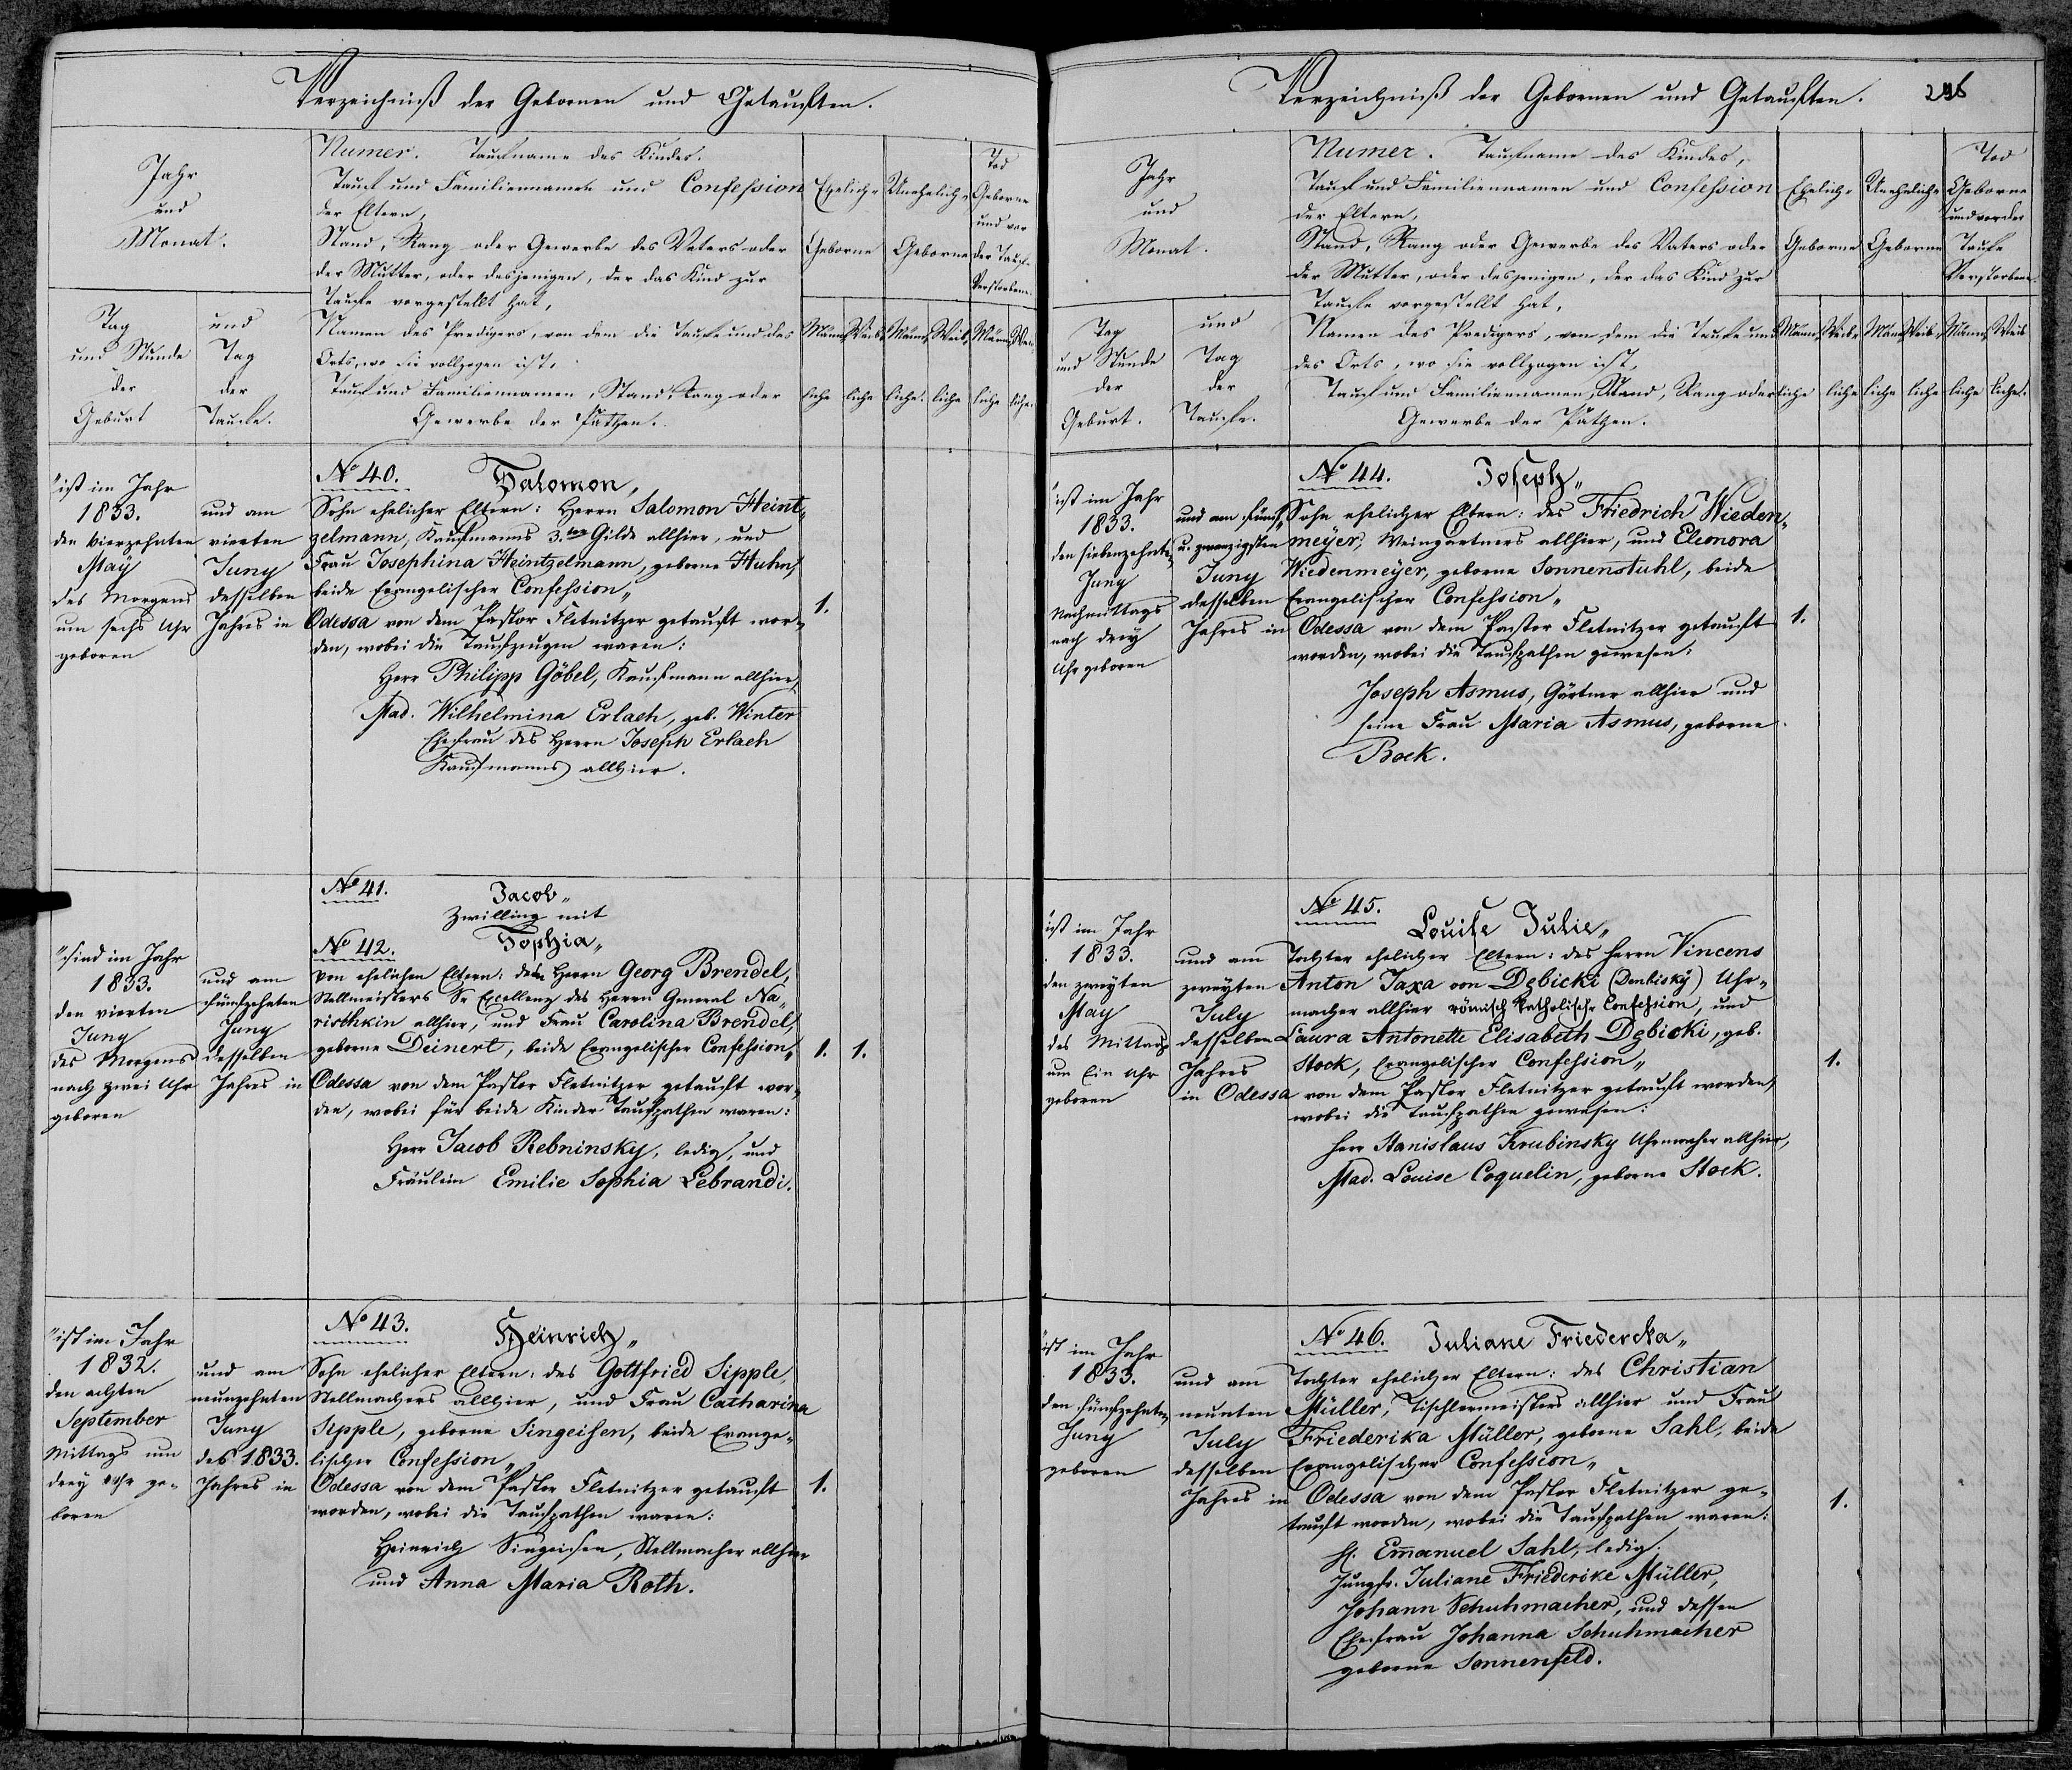 Verzeichniß der Gebornen und Getauften.
Jahr
und
Monat.
Tag
und Stunde
der
Geburt
und
Tag
der
Taufe.
Numer. Taufname des Kindes.
Tauf und Familiennamen und Confession
der Eltern,
Stand, Rang oder Gewerbe des Vaters oder
der Mutter, oder desjenigen, der das Kind zur
Taufe vorgestellt hat,
Namen des Predigers, von dem die Taufe und des
Orts, wo sie vollzogen ist,
Tauf und Familiennamen, Stand, Rang oder
Gewerbe der Pathen.
Ehelich-
Geborne
Unehelich-
Geborne
Tod
Geborne
und vor
der Tauf-
Verstorbene.
Männ- Weib- Männ- Weib- Männ- Wei-
liche liche liche. liche liche liche.
"ist im Jahr
1833.
den vierzehnten
May
des Morgens
um sechs Uhr
geboren
und am
vierten
Juny
desselben
Jahres in
No 40. Salomon,
Sohn ehelicher Eltern: Herrn Salomon Heint-
zelmann, Kaufmanns 3.ter Gilde allhier, und
Frau Josephina Heintzelmann, geborne Huhn,
beide Evangelischer Confession"
Odessa von dem Pastor Fletnitzer getauft wor-
den, wobei die Taufzeugen waren:
Herr Philipp Göbel, Kaufmann allhier,
Mad. Wilhelmina Erlach, geb. Winter
Ehefrau des Herrn Joseph Erlach
Kaufmanns allhier.
1.
"sind im Jahr
1833.
den vierten
Juny
des Morgens
nach zwei Uhr
geboren
und am
fünfzehnten
Juny
desselben
Jahres in
No 41. Jacob"
Zwilling mit
No 42. Sophia"
von ehelichen Eltern: dem Herrn Georg Brendel,
Stallmeisters Sr Excellenz des Herrn General Na-
rischkin allhier, und Frau Carolina Brendel,
geborne Deinert, beide Evangelischer Confession"
Odessa von dem Pastor Fletnitzer getauft wor-
den, wobei für beide Kinder Taufpathen waren:
Herr Jacob Rebninsky, ledig, und
Fräulein Emilie Sophia Lebrandi.
1. 1.
"ist im Jahr
1832.
den achten
September
Mittags um
drey Uhr ge-
boren
und am
neunzehnten
Juny
des 1833.
Jahres in
No 43. Heinrich"
Sohn ehelicher Eltern: des Gottfried Sipple,
Stellmachers allhier, und Frau Catharina
Sipple, geborne Singeisen, beide Evange-
lischer Confession"
Odessa von dem Pastor Fletnitzer getauft
worden, wobei die Taufpathen waren:
Heinrich Singeisen, Stellmacher allhier
und Anna Maria Roth.
1.
Verzeichniß der Gebornen und Getauften.
Jahr
und
Monat.
Tag
und Stunde
der
Geburt.
und
Tag
der
Taufe.
Numer. Taufname des Kindes,
Tauf und Familiennamen und Confession
der Eltern,
Stand, Rang oder Gewerbe des Vaters oder
der Mutter, oder desjenigen, der das Kind zur
Taufe vorgestellt hat,
Namen des Predigers, von dem die Taufe und
des Orts, wo sie vollzogen ist,
Tauf und Familiennamen, Stand, Rang oder
Gewerbe der Pathen.
Ehelich-
Geborne
Uneheliche
Geborne
Tod
Geborne
und vor der
Taufe
Verstorbene.
Männ- Weib- Männ- Weib- Männ- Weib
liche liche liche liche liche liche.
"ist im Jahr
1833.
den siebenzehnten
Juny
Nachmittags
nach drey
Uhr geboren
und am fünf
u. zwanzigsten
Juny
desselben
Jahres in
No 44. Joseph"
Sohn ehelicher Eltern: des Friedrich Wieden-
meyer, Weingärtners allhier, und Eleonora
Wiedenmeyer, geborne Sonnenstuhl, beide
Evangelischer Confession"
Odessa von dem Pastor Fletnitzer getauft
worden, wobei die Taufpathen gewesen:
Joseph Asmus, Gärtner allhier und
seine Frau Maria Asmus, geborne
Bock.
1.
ist im Jahr
1833.
den zweyten
May
des Mittags
um Ein Uhr
geboren
und am
zweyten
July
desselben
Jahres
in Odessa
No 45.
Louise Julie"
Tochter ehelicher Eltern: des Herrn Vincens
Anton Jaxa von Dębicki (Denbisky) Uhr-
macher allhier römisch katholischer Confession, und
Laura Antonette Elisabeth Dębicki, geb.
Stock, Evangelischer Confession"
von dem Pastor Fletnitzer getauft worden,
wobei die Taufpathen gewesen:
Herr Stanislaus Krubinsky Uhrmacher allhier,
Mad. Louise Coquelin, geborne Stock.
1.
ist im Jahr
1833.
den fünfzehnten
Juny
geboren
und am
neunten
July
desselben
Jahres in
No 46. Juliane Friedericka"
Tochter ehelicher Eltern: des Christian
Müller, Tischlermeisters allhier und Frau
Friederika Müller, geborne Sahl, beide
Evangelischer Confession"
Odessa von dem Pastor Fletnitzer ge-
tauft worden, wobei die Taufpathen waren:
H. Emanuel Sahl, ledig.
Jungfr. Juliane Friederike Müller,
Johann Schuhmacher, und dessen
Ehefrau Johanna Schuhmacher
geborne Sonnenfeld.
1.